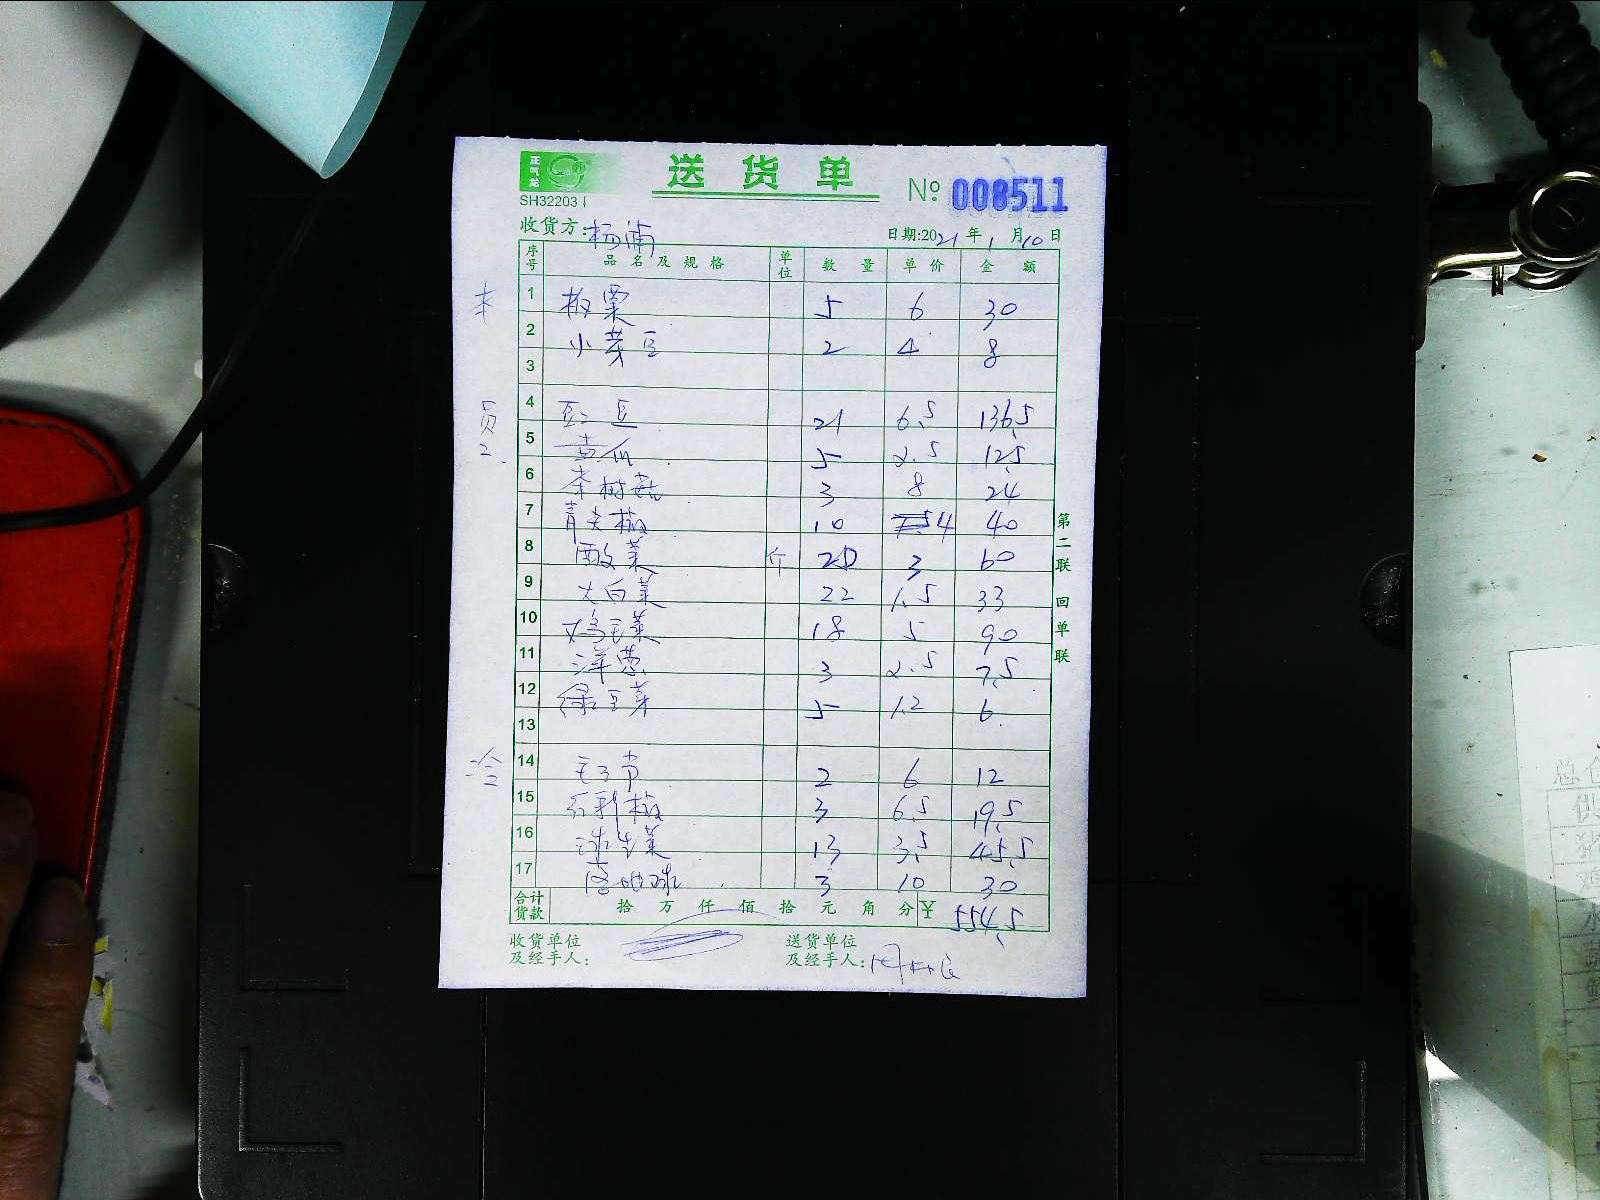 正气龙
送货单
№ 008511
SH32203
收货方: 杨浦
日期:2021年1月10日
序号 品名及规格 单位 数量 单价 金额
本
1 板栗 5 6 30
2 小芽豆 2 4 8
3
员2.
4 豆 21 6.5 136.5
5 黄瓜 5 2.5 12.5
6 茶树菇 3 8 24
7 青尖椒 10 4 40
8 酸菜 斤 20 3 60
9 大白菜 22 1.5 33
10 鸡毛菜 18 5 90
11 洋葱 3 2.5 7.5
12 绿豆芽 5 1.2 6
13
冷
14 2 6 12
15 红利椒 3 6.5 19.5
16 球生菜 13 3.5 45.5
17 地球 3 10 30
合计货款 拾 万 仟 佰 拾 元 角 分 ¥ 554.5
收货单位及经手人:
送货单位及经手人:
第二联 回单联
总
供
鸡
水
蔬